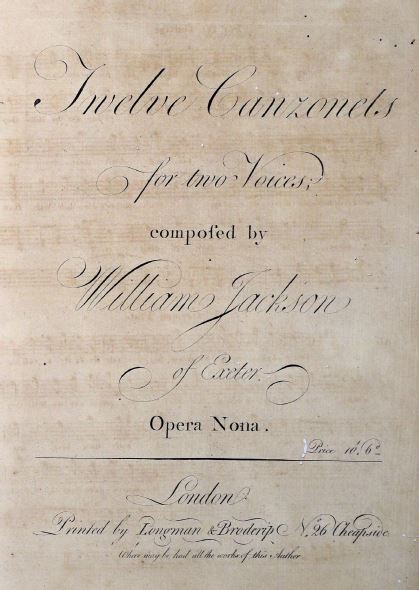 Twelve Canzonets
for two Voices;
compoſed by
William Jackson
of Exeter.
Opera Nona.
Price 10ˢ. 6ᵈ
London
Printed by Longman & Broderip Nº. 26 Cheapside
Where may be had all the works of this Author